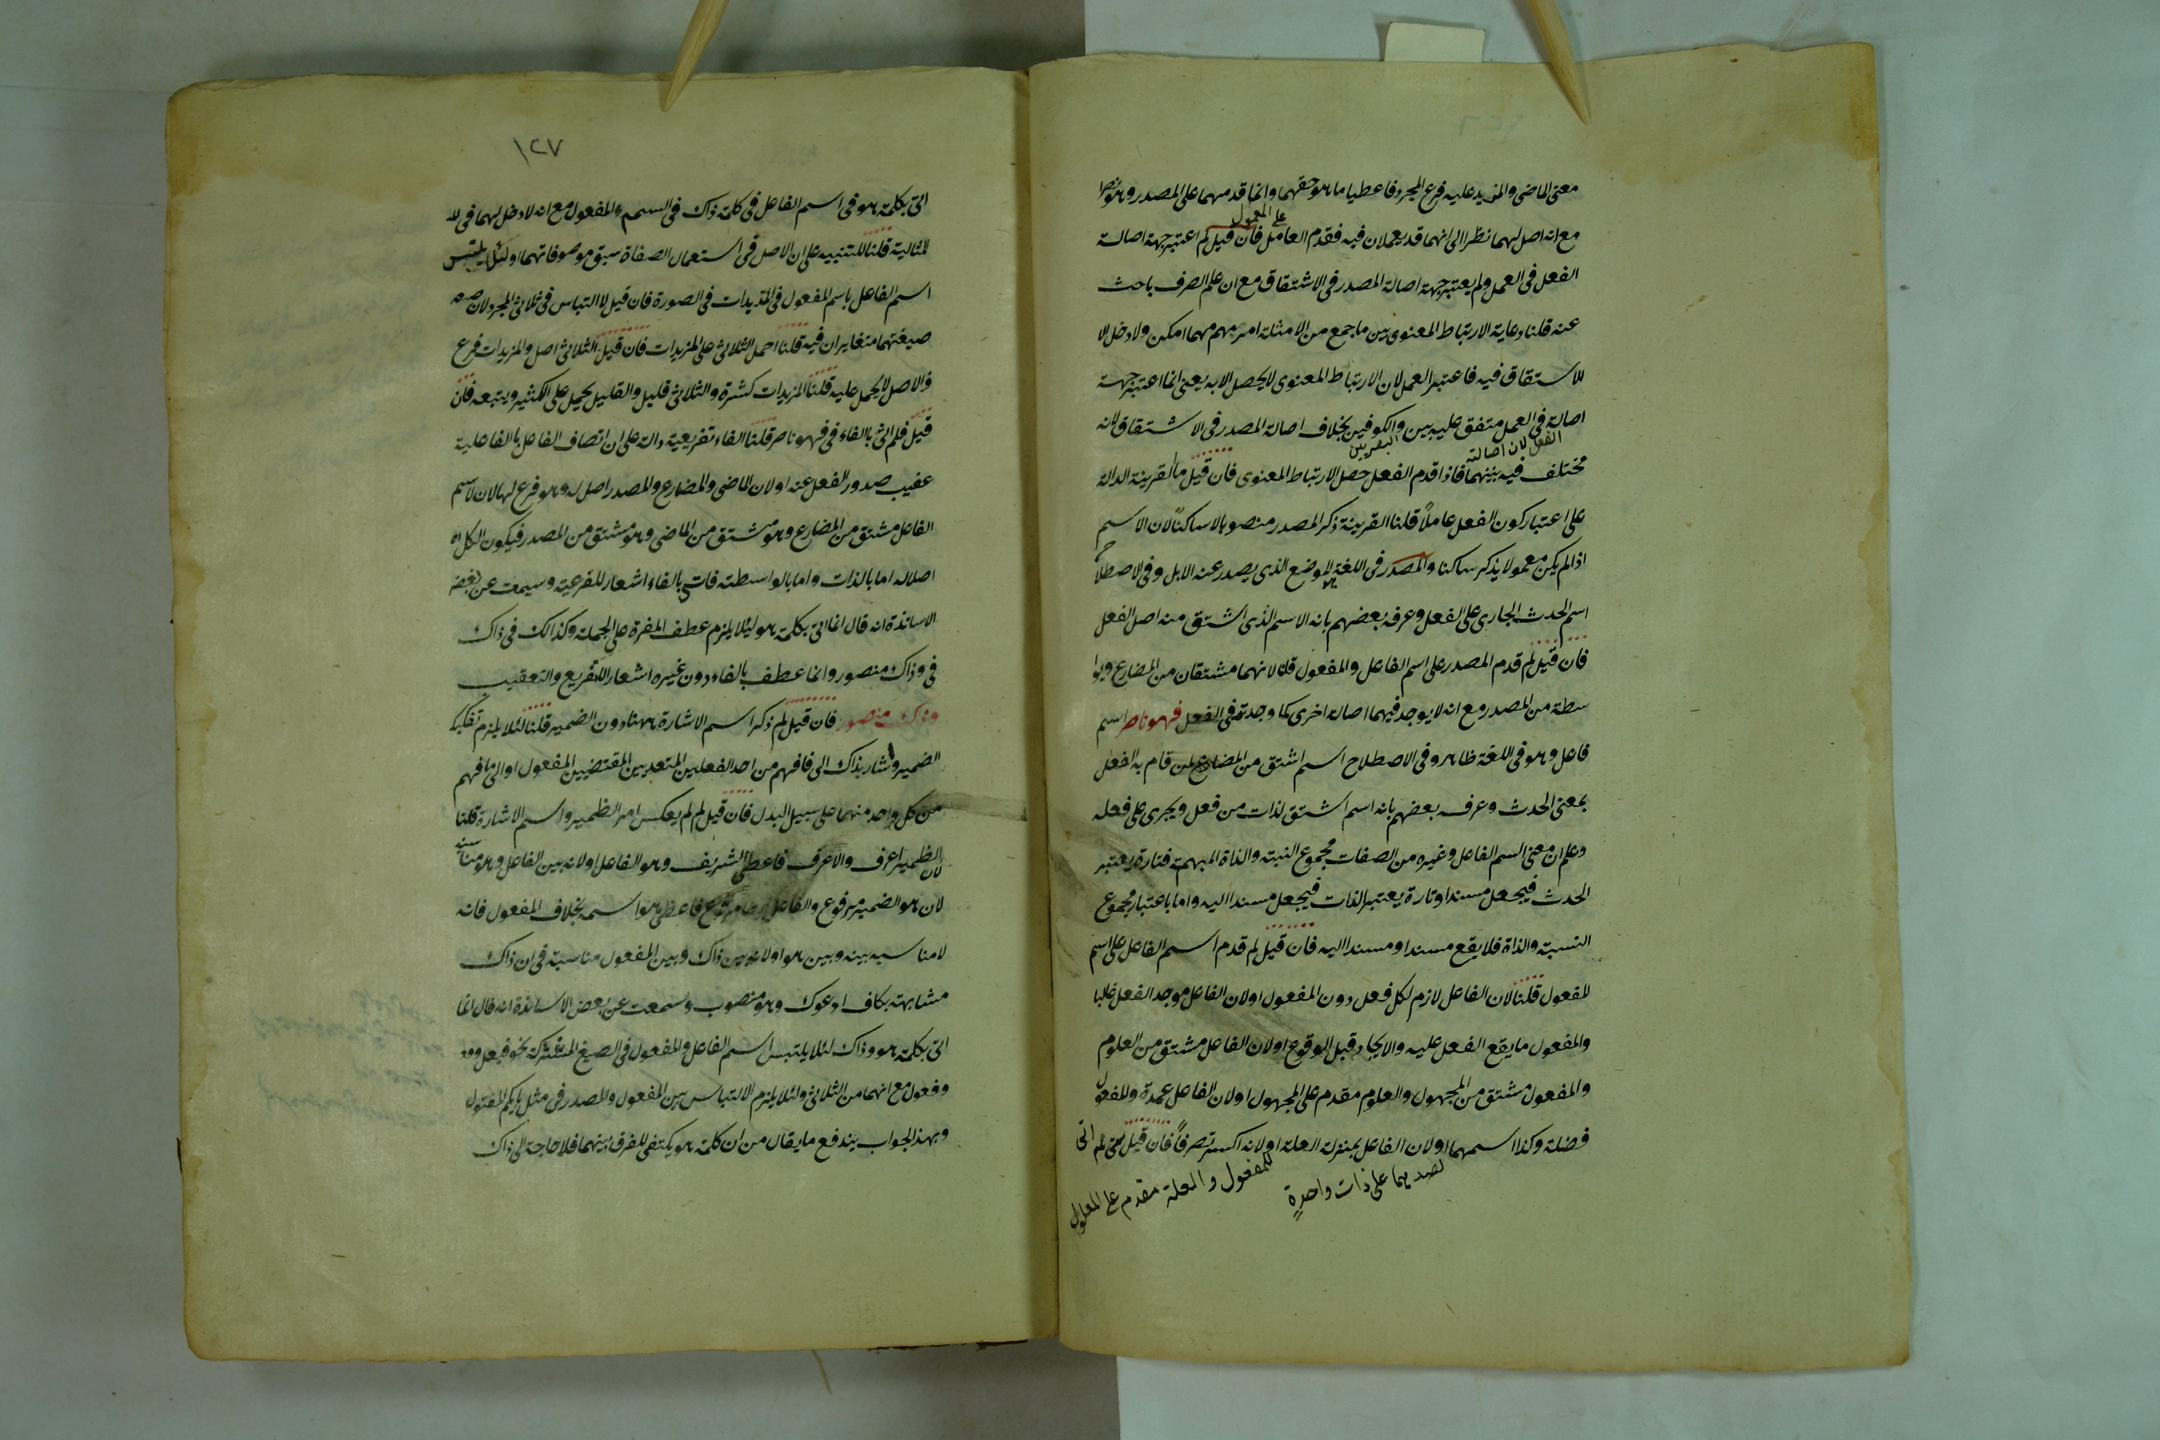 معنى الماضى والمزيد عليه فرع المجرد فاعطيا ما هو حقهما وانما قدمهما على المصدر وهو نصرا
مع انه اصل لهما نظرا الى انهما قد يعملان فيه فقدم العامل على المعمول فان قيل لم اعتبر جهة اصالة
الفعل فى العمل ولم يعتبر جهة اصالة المصدر فى الاشتقاق مع ان علم الصرف باحث
عنه قلنا رعاية الارتباط المعنوى بين ما جمع من الامثلة امر مهم مهما امكن ولا دخل لا
للاستقاق فيه فاعتبر العمل لان الارتباط المعنوى لا يحصل الا به يعنى انما اعتبر جهة
اصالة الفعل لان اصالته فى العمل متفق عليه بين البصريين والكوفيين بخلاف اصالة المصدر فى الاشتقاق لانه
مختلف فيه بينهما فاذا قدم الفعل حصل الارتباط المعنوى فان قيل ما القرينة الدالة
على اعتبار كون الفعل عاملا قلنا القرينة ذكر المصدر منصوبا لا ساكنا لان الاسم
اذا لم يكن معمولا يذكر ساكنا والمصدر فى اللغة الموضع الذى يصدر عنه الابل وفى الاصطلاح
اسم الحدث الجارى على الفعل وعرفه بعضهم بانه الاسم الذى اشتق منه اصل الفعل
فان قيل لم قدم المصدر على اسم الفاعل والمفعول قلنا لانهما مشتقان من المضارع وبوا
سطة من المصدر مع انه لا يوجد فيهما اصالة اخرى كما وجدت فى الفعل فهو ناصر اسم
فاعل وهو فى اللغة ظاهر وفى الاصطلاح اسم اشتق من المضارع لمن قام به الفعل
بمعنى الحدث وعرف بعضهم بانه اسم اشتق لذات من فعل ويجرى على فعله
وعلم ان معنى السم الفاعل وغيره من الصفات مجموع النبته والذاة المبهمة فتارة يعتبر
الحدث فيجعل مسندا وتارة يعتبر الذات فيجعل مسندا اليه واما باعتبار مجموع
النسبة والذاة فلا يقع مسندا ومسندا اليه فان قيل لم قدم اسم الفاعل على اسم
المفعول قلنا لان الفاعل لازم لكل فعل دون المفعول اولان الفاعل موجد الفعل غلبا
والمفعول ما يقع الفعل عليه والايجاد قبل الوقوع اولان الفاعل مشتق من العلوم
والمفعول مشتق من المجهول والعلوم مقدم على المجهول اولان الفاعل عمدة والمفعول
فضلة وكذا اسمهما اولان الفاعل بمنزلة العلة اولانه اكسر تصرفا فان قيل لم اتى
للمفعول والعلة مقدم على المعلول
على ذات واحدة
١٢٧
اتى بكلمة هو فى اسم الفاعل فى كلمة ذاك فى السم المفعول مع انه لا دخل لهما فى
المثالية قلنا للتنبيه على ان الاصل فى استعمال الصفاة سبق موصوفاتهما اولئلا يلتبس
اسم الفاعل باسم المفعول فى المذيدات فى الصورة فان قيل لا التباس فى ثلاثى المجرد لان
صيغتهما متغايران فيه قلنا احمل الثلاثى على المزيدات فان قيل الثلاثى اصل والمزيدات فرع
والاصل لا يحمل عليه قلنا المزيدات كشرة والثلاثى قليل والقليل يحمل على الكثير ويتبعه فان
قيل فلم اتى بالفاء فى فهو ناصر قلنا الفاء تفريعية دالة على ان اتصاف الفاعل بالفاعلية
عقيب صدور الفعل عنه اولان الماضى والمضارع والمصدر اصل له وهو فرع لها لان لاسم
الفاعل مشتق من المضارع وهو مشتق من الماضى وهو مشتق من المصدر فيكون الكل
اصلا له اما بالذات واما بالواسطة فاتى بالفاء اشعار للفرعية وسيمعت عن بعض
الاساتذة انه قال انما اتى بكلمة هو ليئلا يلزم عطف المفرة على الجملة وكذالك فى ذاك
فى وذاك منصور وانما عطف بالفاء دون غيره اشعارا للتفريع والتعقيب
وذاك منصور فان قيل لم ذكر اسم الاشارة ههنا دون الضمير قلنا لئلا يلزم تفكيك
الضمير واشار بذاك الى فافهم من احد الفعلين المتعديين المقتضيين المفعول او الى ما فهم
من كل واحد منهما على سبيل البدل فان قيل لم لم يعكس امر الظمير واسم الاشارة قلنا
لان الظمير اعرف والاعرف فاعطى الشريف وهو الفاعل اولانه بين الفاعل وهو مناسبة
لان هو الضمير مرفوع والفاعل مرفوع فاعطى هو اسمه بخلاف المفعول فانه
لا مناسبه بينه وبين هو اولانه بين ذاك وبين المفعول مناسبة فى ان ذاك
مشابهته بكاف ادعوك وهو منصوب وسمعت عن بعض الاساتذة انه قال انما
اتى بكلمة هو وذاك لئلا يلتبس اسم الفاعل والمفعول فى الصيغ المشتركة نحو فيعل
وفعول مع انهما من الثلاثى ولئلا يلزم الالتباس بين المفعول والمصدر فى مثل بايكم المفتول
وبهذ الجواب يندفع ما يقال من ان كلمة هو يكتفى للفرق بينهما فلا حاجة الى ذاك